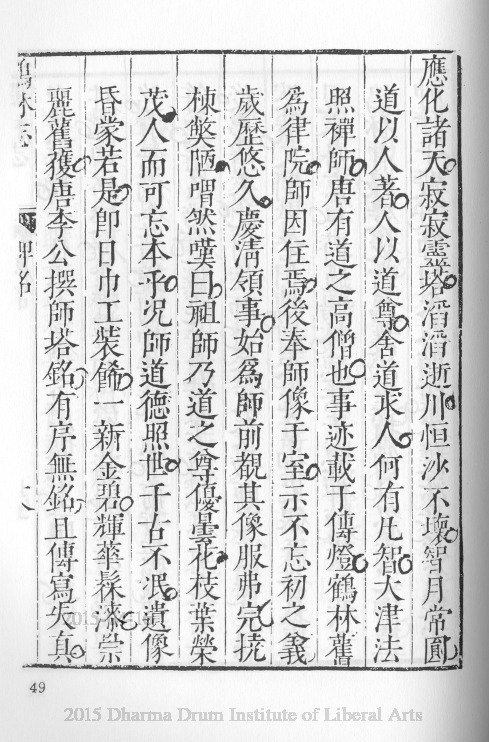 應化諸天寂寂靈塔滔滔逝川恒沙不壞智月常圓
道以人著人以道尊舍道求人何有凡智大津法
照禪師唐有道之高僧也事迹載于傳燈鶴林舊
為律院師因住焉後奉師像于室示不忘初之義
歲歷悠久慶淸領事始爲師前覩其像服弗完撓
棟獘陋喟然嘆曰祖師乃道之尊優曇花枝葉榮
茂人而可忘本乎况師道德照世千古不泯遺像
昏蒙若是卽日巾工裝餙一新金碧輝華髹漆崇
麗舊獲唐李公撰師塔銘有序無銘且傳寫失真
鶴林寺 碑銘
49
2015 Dharma Drum Institute of Liberal Arts